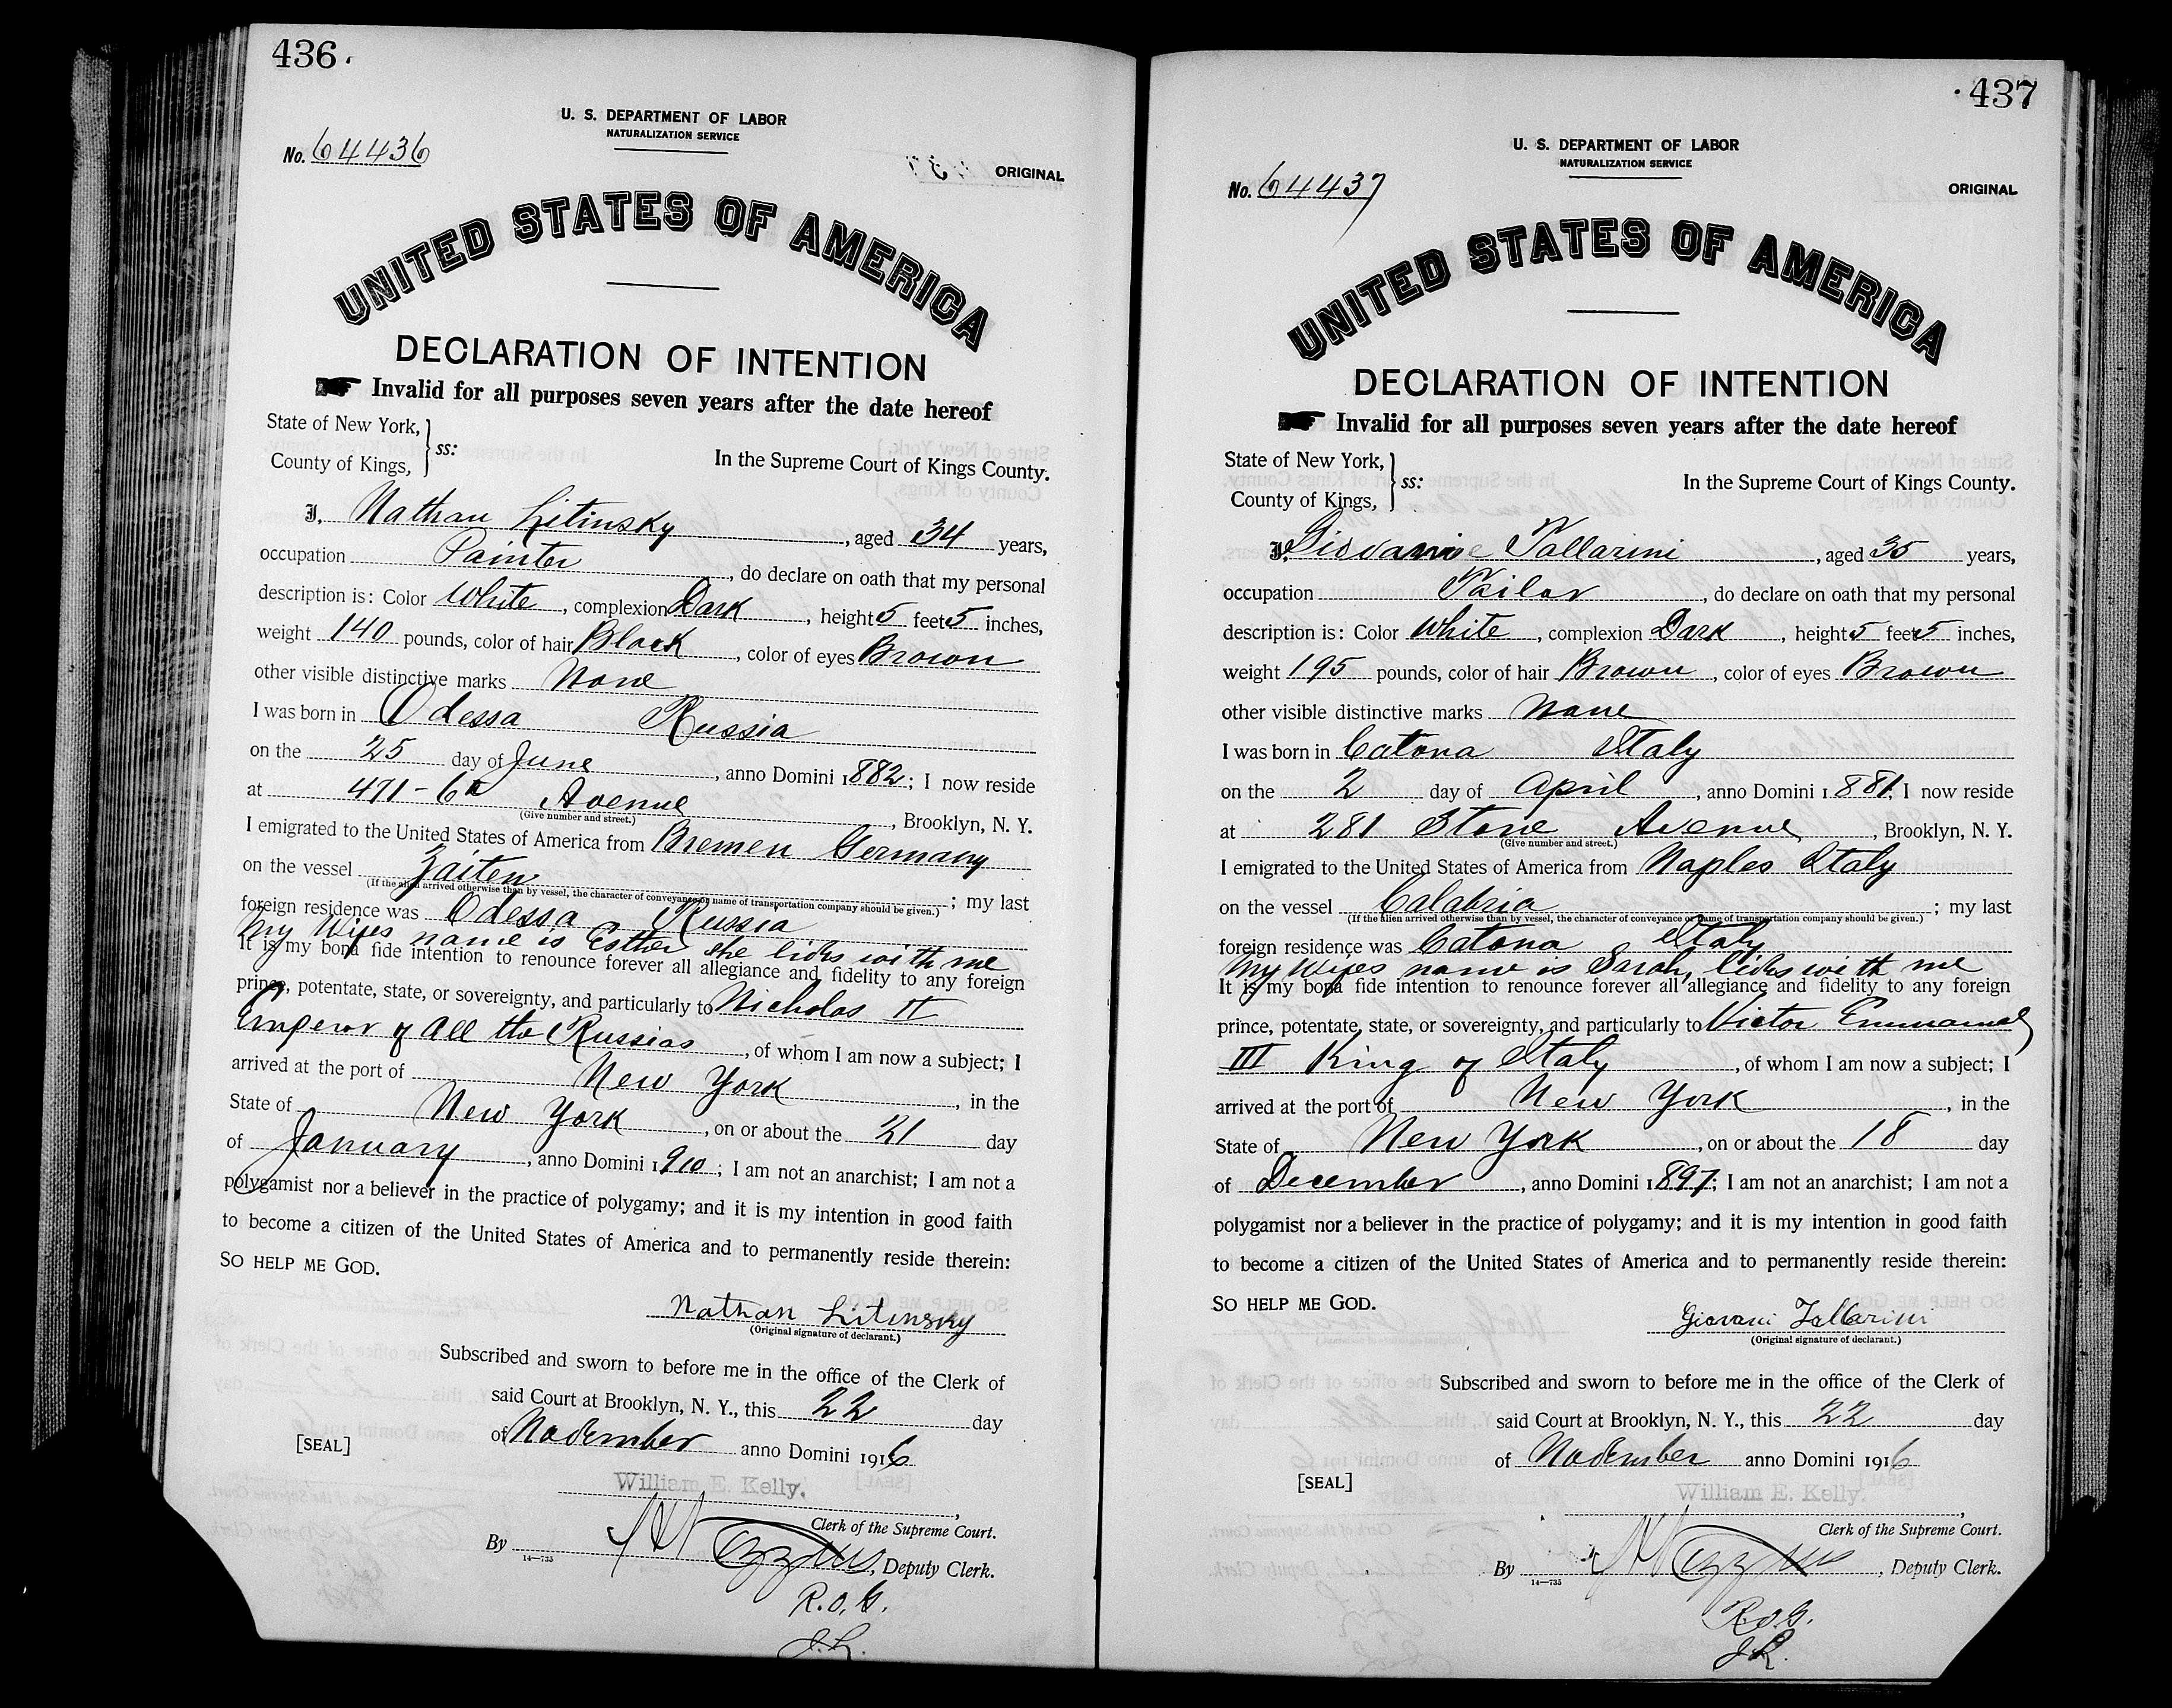 436.
U. S. DEPARTMENT OF LABOR
NATURALIZATION SERVICE
No. 64436
ORIGINAL
UNITED STATES OF AMERICA
DECLARATION OF INTENTION
Invalid for all purposes seven years after the date hereof
State of New York,
County of Kings, } ss:
In the Supreme Court of Kings County.
I, Nathan Litinsky, aged 34 years,
occupation Painter, do declare on oath that my personal
description is: Color White, complexion Dark, height 5 feet 5 inches,
weight 140 pounds, color of hair Black, color of eyes Brown
other visible distinctive marks None
I was born in Odessa Russia
on the 25 day of June, anno Domini 1882; I now reside
at 471 - 6th Avenue, Brooklyn, N. Y.
(Give number and street.)
I emigrated to the United States of America from Bremen Germany
on the vessel Zaiten; my last
(If the alien arrived otherwise than by vessel, the character of conveyance or name of transportation company should be given.)
foreign residence was Odessa Russia
My Wifes name is Esther she lives with me
It is my bona fide intention to renounce forever all allegiance and fidelity to any foreign
prince, potentate, state, or sovereignty, and particularly to Nicholas II
Emperor of All the Russias, of whom I am now a subject; I
arrived at the port of New York, in the
State of New York, on or about the 21 day
of January, anno Domini 1910; I am not an anarchist; I am not a
polygamist nor a believer in the practice of polygamy; and it is my intention in good faith
to become a citizen of the United States of America and to permanently reside therein:
SO HELP ME GOD.
Nathan Litinsky
(Original signature of declarant.)
Subscribed and sworn to before me in the office of the Clerk of
said Court at Brooklyn, N. Y., this 22 day
of November anno Domini 1916
[SEAL]
William E. Kelly.
Clerk of the Supreme Court.
By , Deputy Clerk.
14—735
R.O.G.
J.L.
437
U. S. DEPARTMENT OF LABOR
NATURALIZATION SERVICE
No. 64437
ORIGINAL
UNITED STATES OF AMERICA
DECLARATION OF INTENTION
Invalid for all purposes seven years after the date hereof
State of New York,
County of Kings, } ss:
In the Supreme Court of Kings County.
I, Tallarini, aged 35 years,
occupation Tailor, do declare on oath that my personal
description is: Color White, complexion Dark, height 5 feet 5 inches,
weight 195 pounds, color of hair Brown, color of eyes Brown
other visible distinctive marks None
I was born in Catona Italy
on the 2 day of April, anno Domini 1881; I now reside
at 281 Stone Avenue, Brooklyn, N. Y.
(Give number and street.)
I emigrated to the United States of America from Naples Italy
on the vessel Calabria; my last
(If the alien arrived otherwise than by vessel, the character of conveyance or name of transportation company should be given.)
foreign residence was Catona Italy
My Wifes name is Sarah, lives with me
It is my bona fide intention to renounce forever all allegiance and fidelity to any foreign
prince, potentate, state, or sovereignty, and particularly to Victor Emmanuel
III King of Italy, of whom I am now a subject; I
arrived at the port of New York, in the
State of New York, on or about the 18 day
of December, anno Domini 1897; I am not an anarchist; I am not a
polygamist nor a believer in the practice of polygamy; and it is my intention in good faith
to become a citizen of the United States of America and to permanently reside therein:
SO HELP ME GOD.
Giovani Tallarini
(Original signature of declarant.)
Subscribed and sworn to before me in the office of the Clerk of
said Court at Brooklyn, N. Y., this 22 day
of November anno Domini 1916
[SEAL]
William E. Kelly.
Clerk of the Supreme Court.
By , Deputy Clerk.
14—735
R.O.G.
J.L.